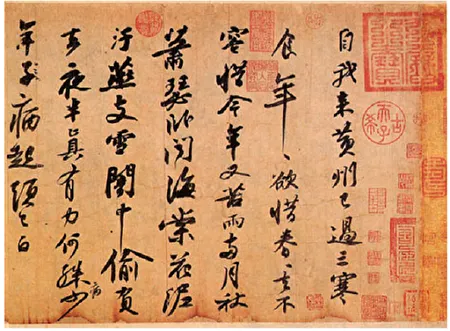 自我来黄州已過三寒
食年〻欲惜春〻去不
容惜今年又苦雨兩月秋
蕭瑟卧聞海棠花泥
汙燕支雪闇中偷負
去夜半真有力何殊少病
年子病起須已白
古希天子